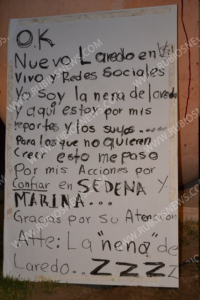 O.K
Nuevo Laredo en
Vivo y Redes Sociales
Yo soy la nena de laredo
y aqui estoy por mis
reportes y los suyos.....
Para los que no quieran
creer esto me paso
Por mis Acciones por
Confiar en SEDENA y
MARINA...
Gracias por su Atencion
Atte: La "nena" de
Laredo..ZZZZ